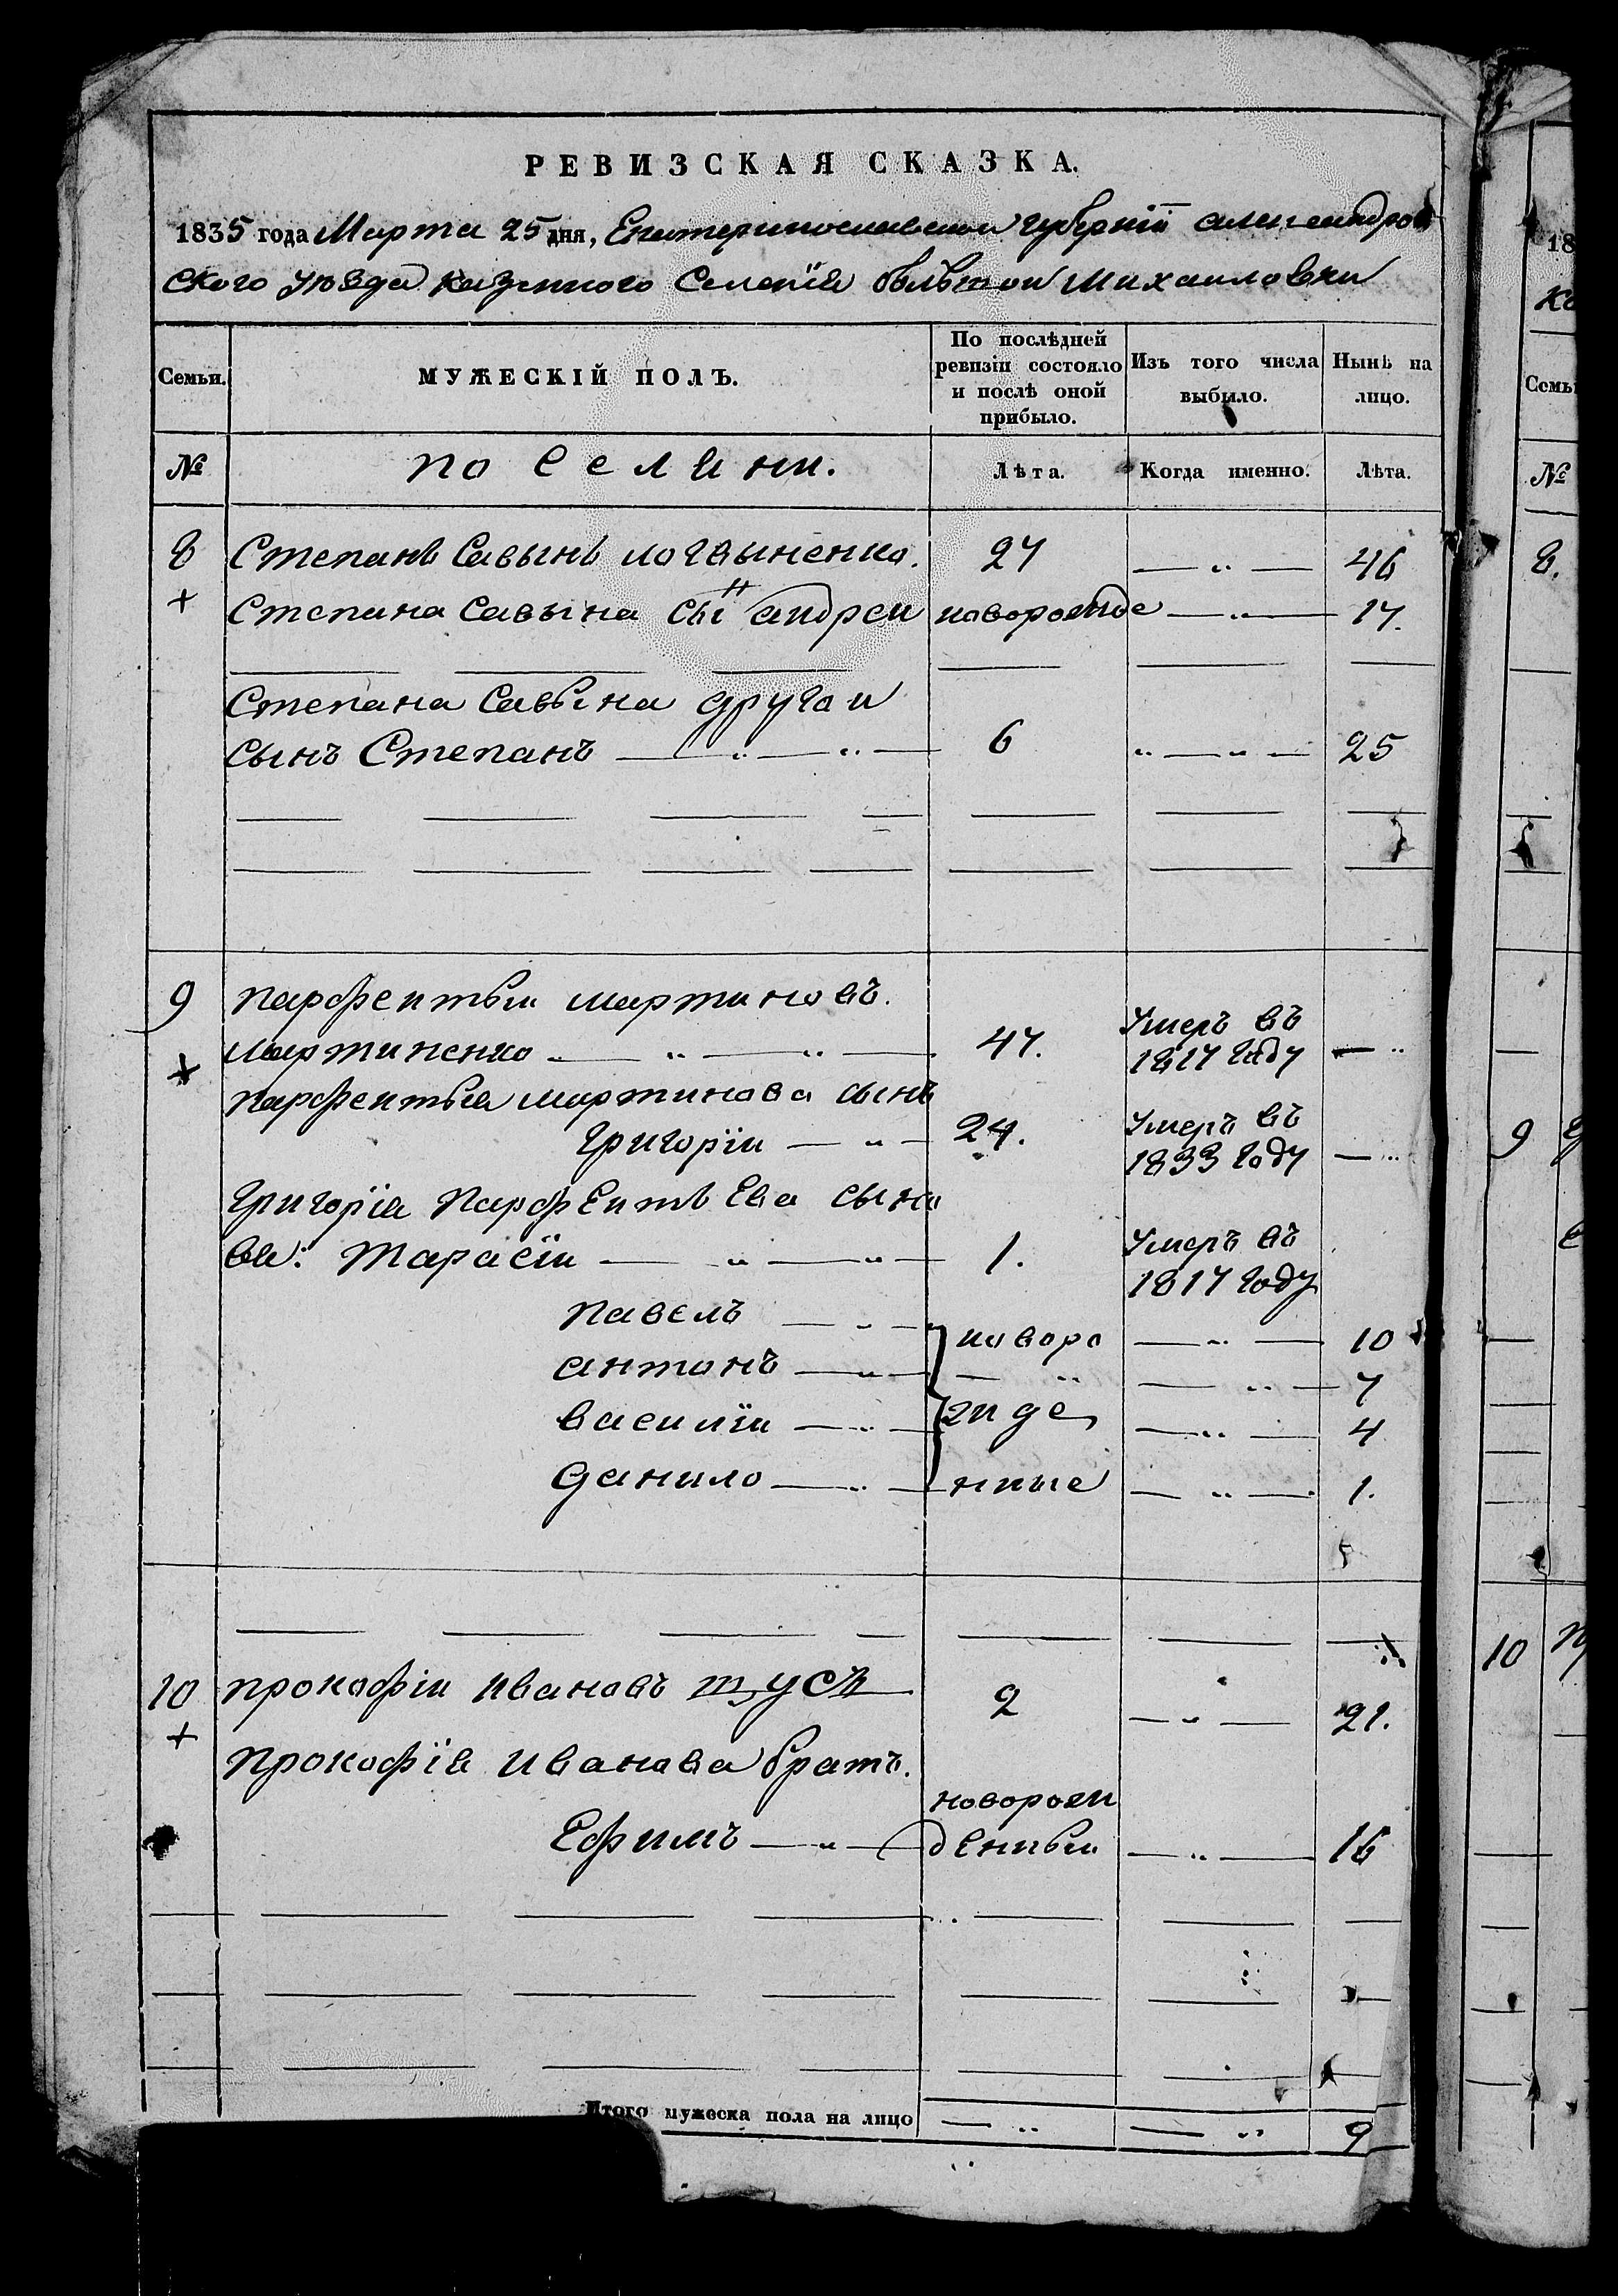 РЕВИЗСКАЯ СКАЗКА.
1835 года Марта 25 дня, Екатеринославской губернїи александров
ского уѣзда казенного Селенїя болшой Михаиловки
Семьи.
МУЖЕСКІЙ ПОЛЪ.
По послѣдней ревизіи состояло и послѣ оной прибыло.
Изъ того числа выбыло.
Нынѣ на лицо.
№
поселяни.
Лѣта.
Когда именно.
Лѣта.
8 Степанъ Савынъ логвыненко. 27 46
Степана Савына сы͞н андреи новорожде 17.
Степана Савына другои
сынъ Степанъ 6 25
9 парфентьи мартиновъ.
мартиненко 47. Умеръ въ 1817 году
парфентья мартинова сынъ
Григорїи 24. Умеръ въ 1833 году
Григорїя Парфентьева сыно
вя: Тарасїи 1. Умеръ въ 1817 году
Павелъ новоро 10
антонъ 7
василїи жде 4
данило нные 1.
5
10 прокофїи ивановъ тусъ 2 21.
прокофїя иванова братъ.
Ефимъ новорож денныи 16
Итого мужеска пола на лицо 9
18
Семьи
№
8.
9
10